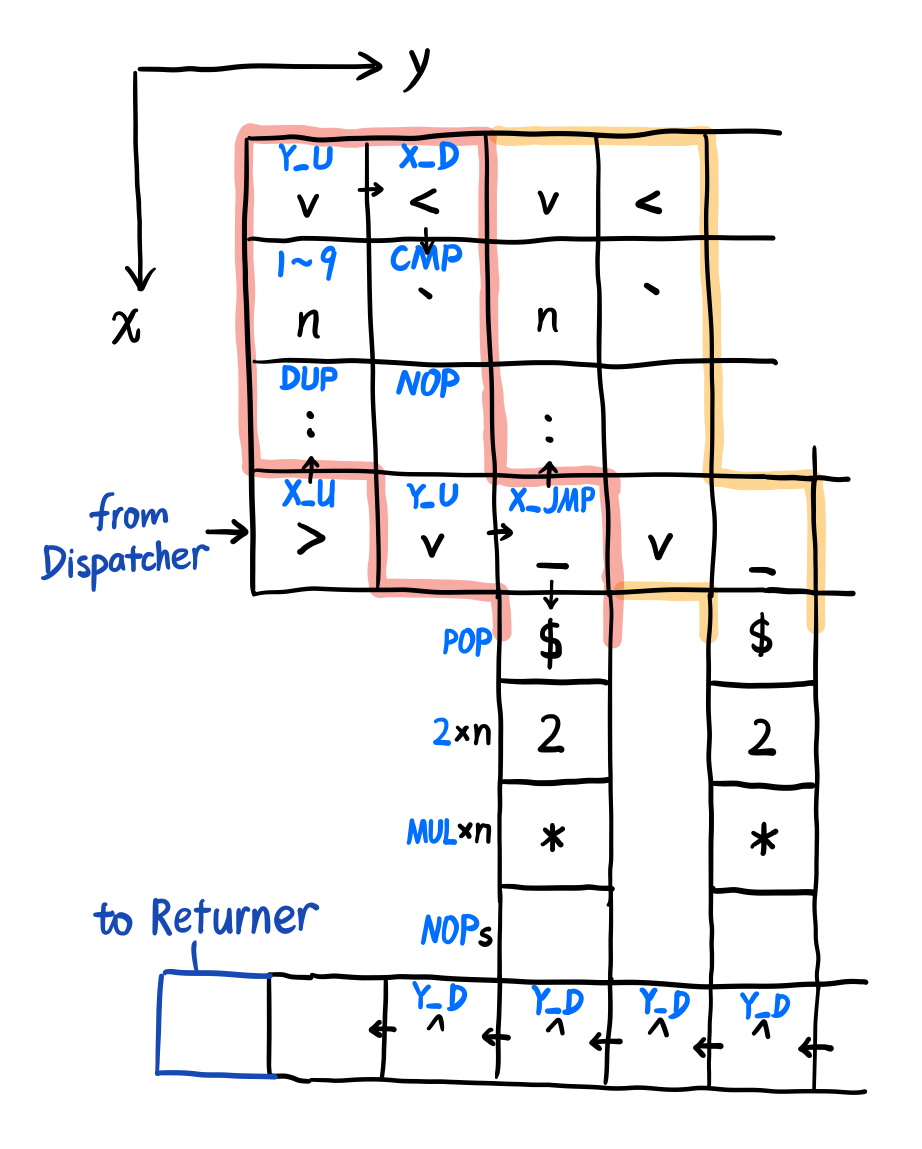 y
x
Y_U X_D
v < v <
1~9 CMP
n ` n `
DUP NOP
: :
from Dispatcher
X_U Y_U X_JMP
> v _ v _
POP $ $
2×n 2 2
MUL×n * *
to Returner
NOPs
Y_D Y_D Y_D Y_D
^ ^ ^ ^